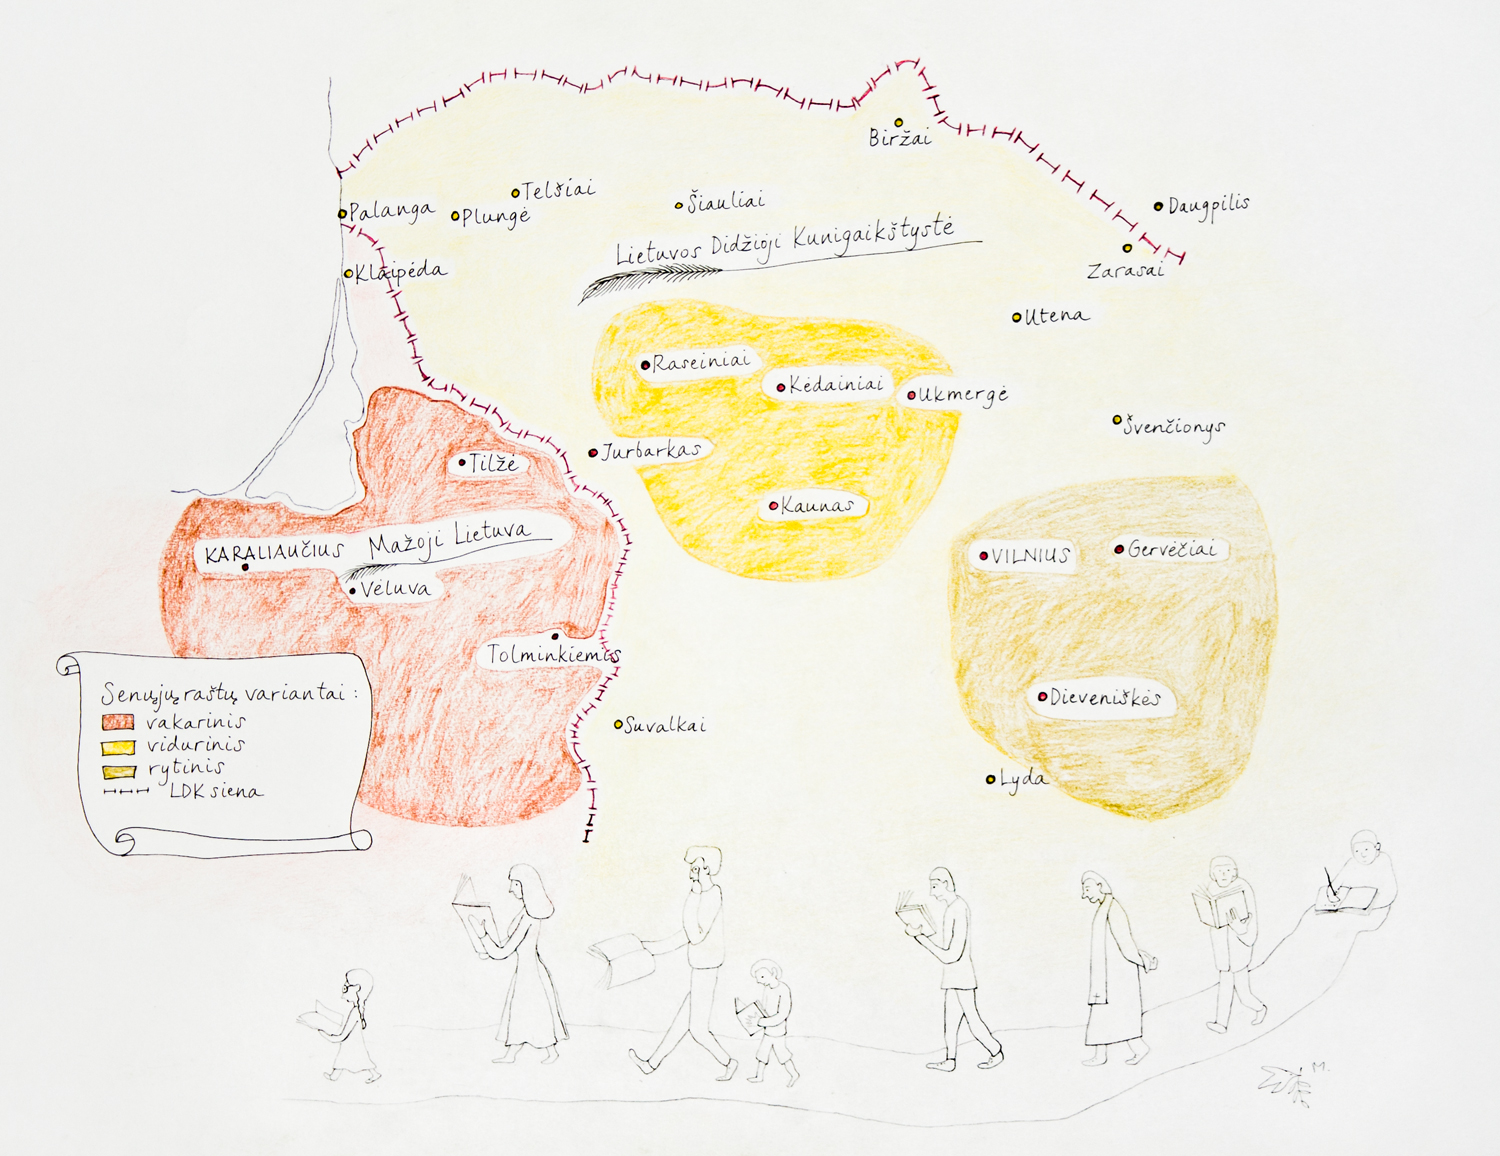 Biržai
Telšiai
Palanga
Plungė
Šiauliai
Daugpilis
Lietuvos Didžioji Kunigaikštystė
Klaipėda
Zarasai
Utena
Raseiniai
Kėdainiai
Ukmergė
Švenčionys
Jurbarkas
Tilžė
Kaunas
KARALIAUČIUS
Mažoji Lietuva
VILNIUS
Gervėčiai
Vėluva
Tolminkiemis
Dieveniškės
Suvalkai
Lyda
Senųjų raštų variantai:
vakarinis
vidurinis
rytinis
LDK siena
M.